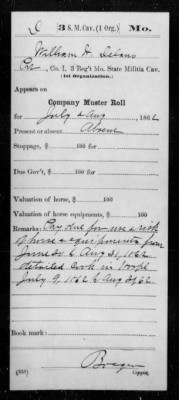 D 3 S. M. Cav. (1 Org.) Mo.
William H. Delans
Pvt, Co. I, 3 Reg't Mo. State Militia Cav.
(1st Organization.)
Appears on
Company Muster Roll
for July & Aug, 1862
Present or absent Absent
Stoppage, $ 100 for
Due Gov't, $ 100 for
Valuation of horse, $ 100
Valuation of horse equipments, $ 100
Remarks: Pay due for use & risk
of horse & equipments from
June 30 to Aug 31, 1862
detailed Cook in Hospl
July 9, 1862 to Aug 31/62
Book mark:
(358) Copyist.